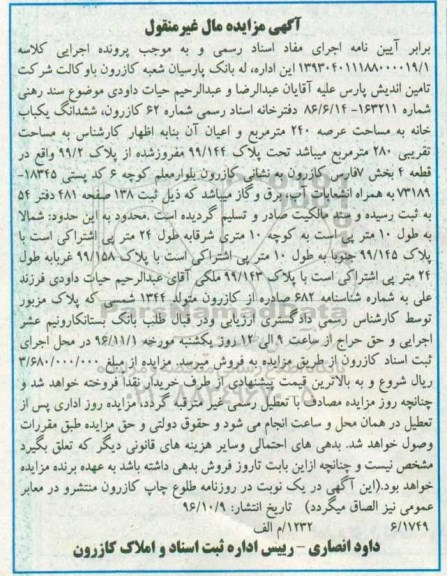 آگهی مزایده مال غیرمنقول
برابر آیین نامه اجرای مفاد اسناد رسمی و به موجب پرونده اجرایی کلاسه
۱۳۹۳۰۴۰۱۱۱۸۸۰۰۰۰۱۹/۱ این اداره، له بانک پارسیان شعبه کازرون باوکالت شرکت
تامین اندیش پارس علیه آقایان عبدالرضا و عبدالرحیم حیات داودی موضوع سند رهنی
شماره ۱۶۳۲۱۱- ۸۶/۶/۱۴ دفترخانه اسناد رسمی شماره ۶۲ کازرون، ششدانگ یکباب
خانه به مساحت عرصه ۲۴۰ مترمربع و اعیان آن بنابه اظهار کارشناس به مساحت
تقریبی ۲۸۰ مترمربع میباشد تحت پلاک ۹۹/۱۴۴ مفروزشده از پلاک ۹۹/۲ واقع در
قطعه ۴ بخش ۷فارس کازرون به نشانی کازرون بلوارمعلم کوچه ۶ کد پستی ۱۸۳۴۵-
۷۳۱۸۹ به همراه انشعابات آب، برق و گاز میباشد که ذیل ثبت ۱۳۸ صفحه ۴۸۱ دفتر ۵۴
به ثبت رسیده و سند مالکیت صادر و تسلیم گردیده است .محدود به این حدود: شمالا
به طول ۱۰ متر پی است به کوچه ۱۰ متری شرقابه طول ۲۴ متر پی اشتراکی است با
پلاک ۹۹/۱۴۵ جنوبا به طول ۱۰ متر پی اشتراکی است با پلاک ۹۹/۱۵۸ غربابه طول
۲۴ متر پی اشتراکی است با پلاک ۹۹/۱۴۳ ملکی آقای عبدالرحیم حیات داودی فرزند
علی به شماره شناسنامه ۶۸۲ صادره از کازرون متولد ۱۳۴۴ شمسی که پلاک مزبور
توسط کارشناس رسمی دادگستری ارزیابی ودر قبال طلب بانک بستانکارونیم عشر
اجرایی و حق حراج از ساعت ۹ الی ۱۲ روز یکشنبه مورخه ۹۶/۱۱/۱ در محل اجرای
ثبت اسناد کازرون از طریق مزایده به فروش میرسد. مزایده از مبلغ ۳/۶۸۰/۰۰۰/۰۰۰
ریال شروع و به بالاترین قیمت پیشنهادی از طرف خریدار نقدا فروخته خواهد شد و
چنانچه روز مزایده مصادف با تعطیل رسمی غیر مترقبه گردد، مزایده روز اداری پس از
تعطیل در همان محل و ساعت انجام می شود و حقوق دولتی و حق مزایده طبق مقررات
وصول خواهد شد. بدهی های احتمالی وسایر هزینه های قانونی دیگر که تعلق بگیرد
مشخص نیست و چنانچه ازاین بابت تاروز فروش بدهی داشته باشد به عهده برنده مزایده
خواهد بود.(این آگهی در یک نوبت در روزنامه طلوع چاپ کازرون منتشرو در معابر
عمومی نیز الصاق میگردد) تاریخ انتشار: ۹۶/۱۰/۹
۶/۱۷۴۹ ۱۲۳۲/م الف
داود انصاری – رییس اداره ثبت اسناد و املاک کازرون